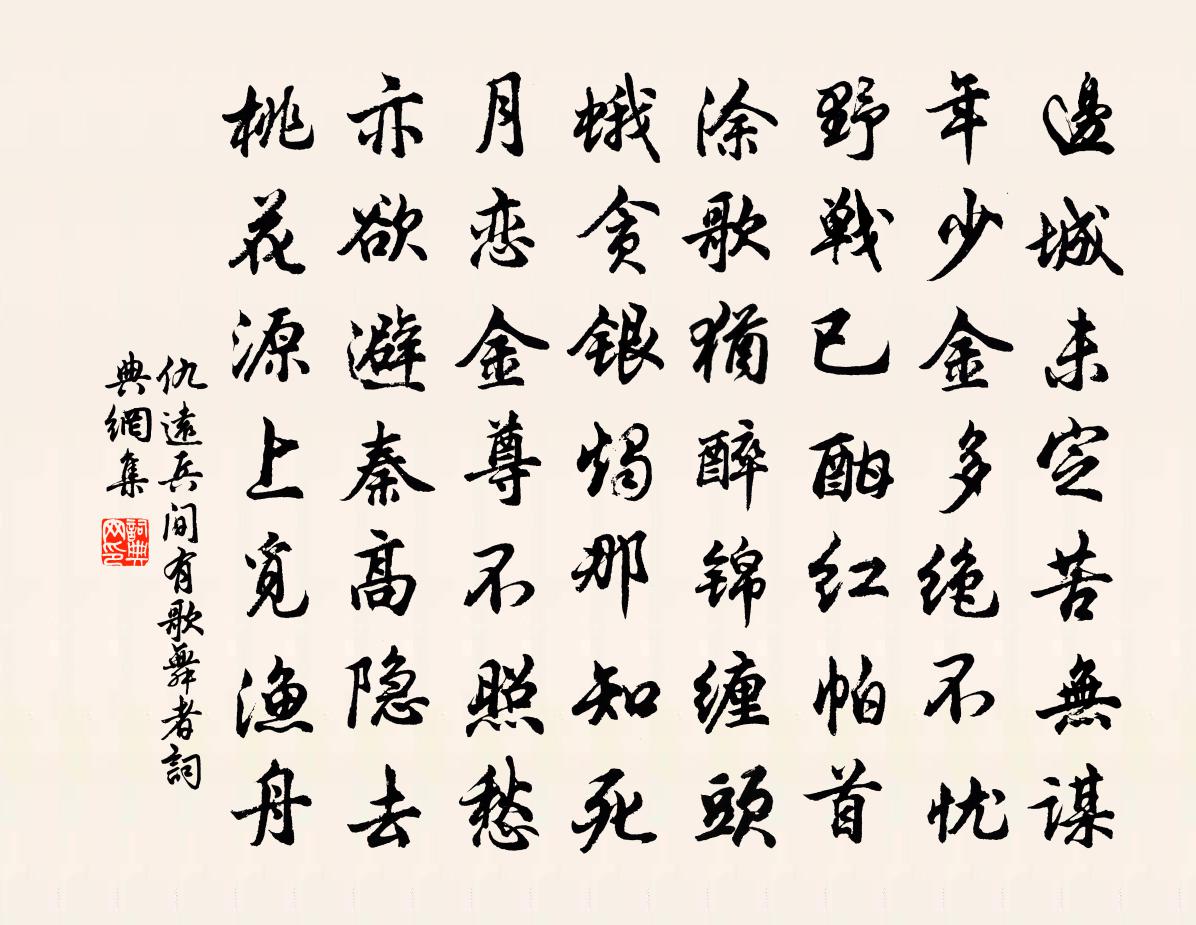 邊城未定苦無謀
年少金多绝不忧
野戰已酣红帕首
涂歌猶醉锦缠頭
蛾贪银燭那知死
月恋金尊不照愁
亦欲避秦高隐去
桃花源上覓漁舟
仇遠兵间有歌舞者詞
典網集
詞典網印